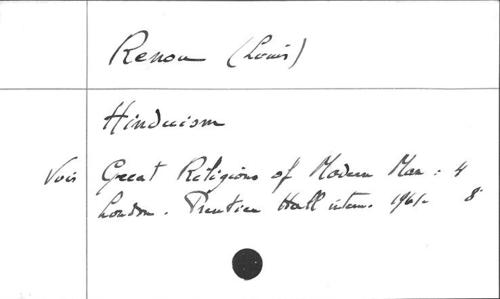 Renou (Louis)
Hinduism
Voir Great Religions of Modern Man : 4
London. Prentice Hall intern. 1961. 8°